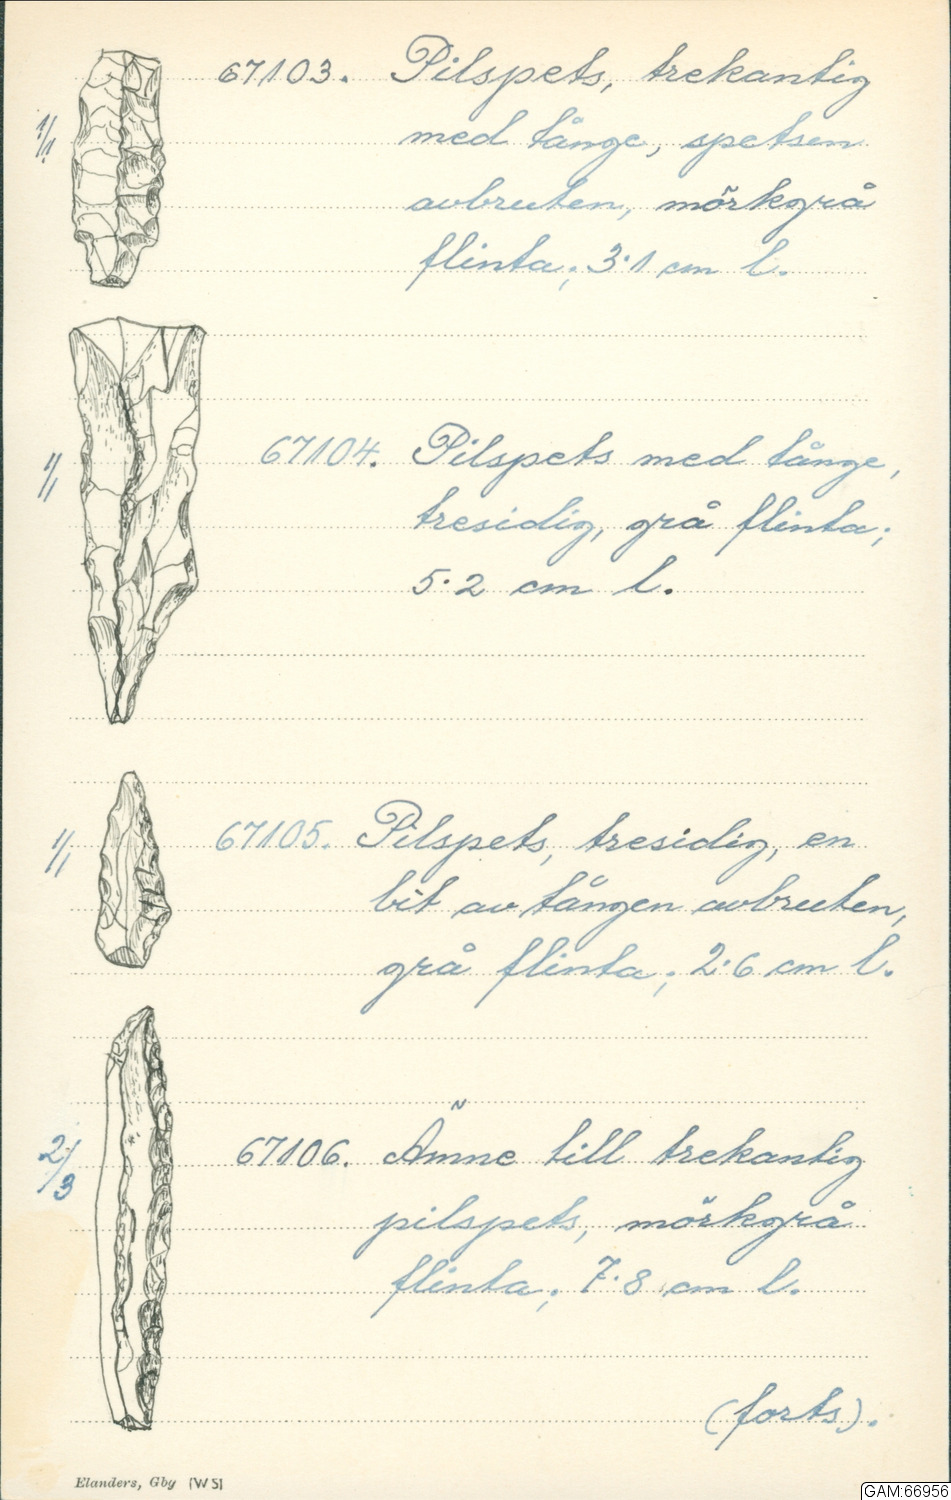 1/1
67103. Pilspets, trekantig
med tånge, spetsen
avbruten, mörkgrå
flinta; 3·1 cm l.
1/1
67104. Pilspets med tånge,
tresidig, grå flinta;
5·2 cm l.
1/1
67105. Pilspets, tresidig, en
bit av tången avbruten,
grå flinta; 2·6 cm l.
2/3
67106. Ämne till trekantig
pilspets, mörkgrå
flinta; 7·8 cm l.
(forts).
Elanders, Gby [WS]
GAM:66956